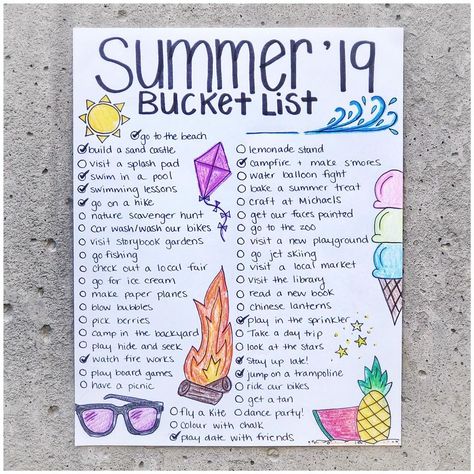 Summer '19
Bucket List
go to the beach
build a sand castle
visit a splash pad
swim in a pool
swimming lessons
go on a hike
nature scavenger hunt
car wash/wash our bikes
visit storybook gardens
go fishing
check out a local fair
go for ice cream
make paper planes
blow bubbles
pick berries
camp in the backyard
play hide and seek
watch fire works
play board games
have a picnic
lemonade stand
campfire + make s'mores
water balloon fight
bake a summer treat
craft at Michaels
get our faces painted
go to the zoo
visit a new playground
go jet skiing
visit a local market
visit the library
read a new book
chinese lanterns
play in the sprinkler
Take a day trip
look at the stars
Stay up late!
jump on a trampoline
ride our bikes
get a tan
fly a kite
dance party!
colour with chalk
play date with friends